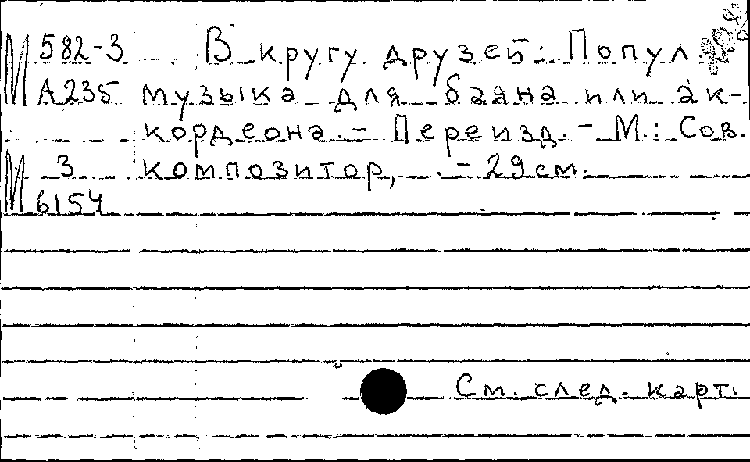 М 582-3 В кругу друзей: Попул.
А235 музыка для баяна или ак-
кордеона. - Переизд. - М.: Сов.
М 3 композитор, . - 29 см.
6154
См. след. карт.